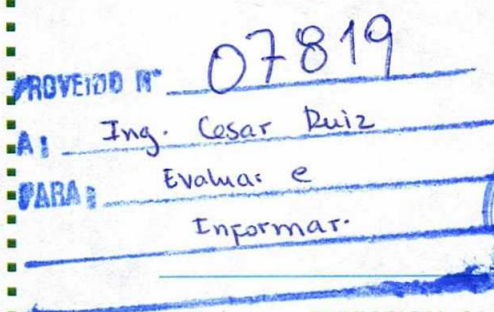 PROVEIDO N° 07819
A: Ing. Cesar Ruiz
PARA: Evaluar e
Informar.